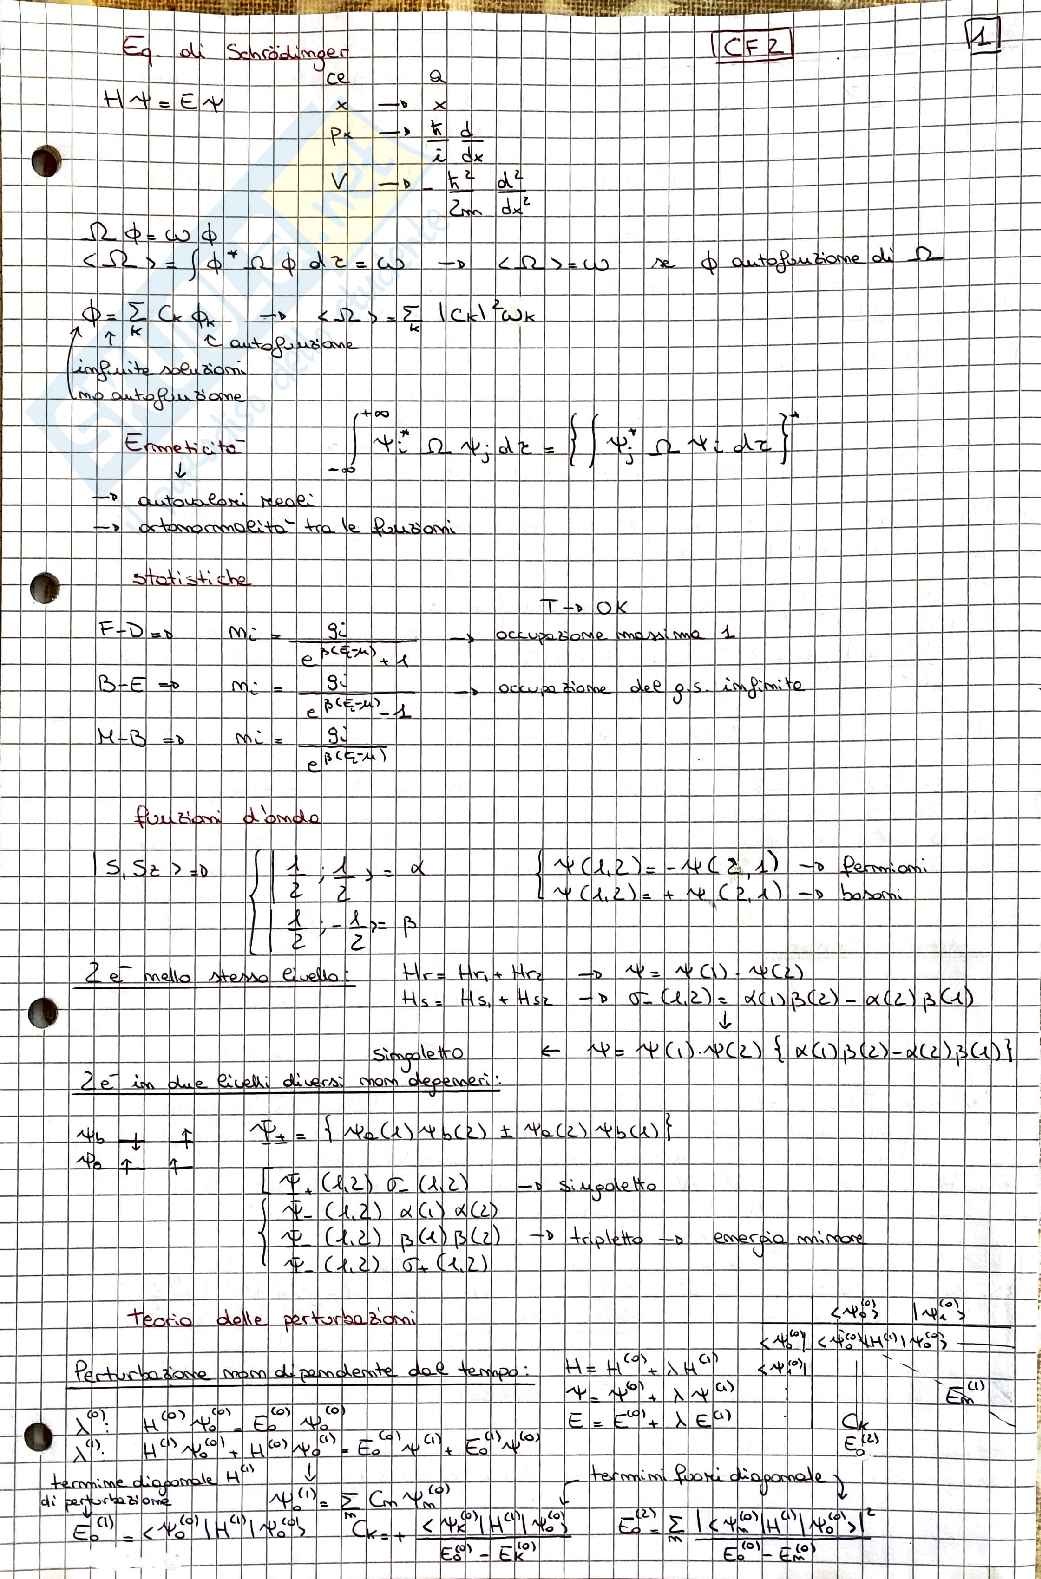 CF2
1
Eq. di Schrödinger
HΨ = EΨ
ce Q
x → x
px → ħ/i d/dx
V → - ħ²/2m d²/dx²
Ω ϕ = ω ϕ
<Ω> = ∫ ϕ* Ω ϕ dτ = ω → <Ω> = ω se ϕ autofunzione di Ω
ϕ = Σ_k C_k ϕ_k → <Ω> = Σ_k |C_k|² ω_k
↑ ↑ autofunzione
infinite soluzioni
no autofunzione
Ermeticità ∫_{-∞}^{+∞} Ψi* Ω Ψj dτ = {∫ Ψj* Ω Ψi dτ}*
↓
→ autovalori reali
→ ortonormalità tra le funzioni
statistiche
T → 0K
F-D ⇒ ni = gi / e^{β(εi-μ)} + 1 → occupazione massima 1
B-E ⇒ ni = gi / e^{β(εi-μ)} - 1 → occupazione del g.s. infinita
M-B ⇒ ni = gi / e^{β(εi-μ)}
funzioni d'onda
|S, Sz> ⇒ { |1/2 ; 1/2> = α
|1/2 ; -1/2> = β
{ Ψ(1,2) = -Ψ(2,1) → fermioni
Ψ(1,2) = +Ψ(2,1) → bosoni
2 e⁻ nello stesso livello: Hr = Hr1 + Hr2 → Ψ = Ψ(1) · Ψ(2)
Hs = Hs1 + Hs2 → σ-(1,2) = α(1)β(2) - α(2)β(1)
↓
singoletto ← Ψ = Ψ(1)·Ψ(2) {α(1)β(2) - α(2)β(1)}
2 e⁻ in due livelli diversi non degeneri:
Ψb ↓ ↑ Ψ± = {Ψa(1)Ψb(2) ± Ψa(2)Ψb(1)}
Ψa ↑ ↑
[ Ψ+(1,2) σ-(1,2) → singoletto
{ Ψ-(1,2) α(1)α(2)
Ψ-(1,2) β(1)β(2) → tripletto → energia minore
Ψ-(1,2) σ+(1,2)
teoria delle perturbazioni
<Ψ0^(0)> |Ψ1^(0)>
<Ψ0^(0)| <Ψ0^(0)|H^(1)|Ψ0^(0)>
<Ψ1^(0)|
Em^(1)
Ck
E0^(2)
Perturbazione non dipendente dal tempo: H = H^(0) + λH^(1)
Ψ = Ψ^(0) + λΨ^(1)
E = E^(0) + λE^(1)
λ^(0): H^(0) Ψ0^(0) = E0^(0) Ψ0^(0)
λ^(1): H^(1) Ψ0^(0) + H^(0) Ψ0^(1) = E0^(0) Ψ^(1) + E0^(1) Ψ^(0)
termine diagonale H^(1)
di perturbazione
↓
termini fuori diagonale
Ψ0^(1) = Σ_m Cm Ψm^(0)
E0^(1) = <Ψ0^(0)|H^(1)|Ψ0^(0)>
Ck = + <Ψk^(0)|H^(1)|Ψ0^(0)> / E0^(0) - Ek^(0)
E0^(2) = Σ_m |<Ψm^(0)|H^(1)|Ψ0^(0)>|² / E0^(0) - Em^(0)